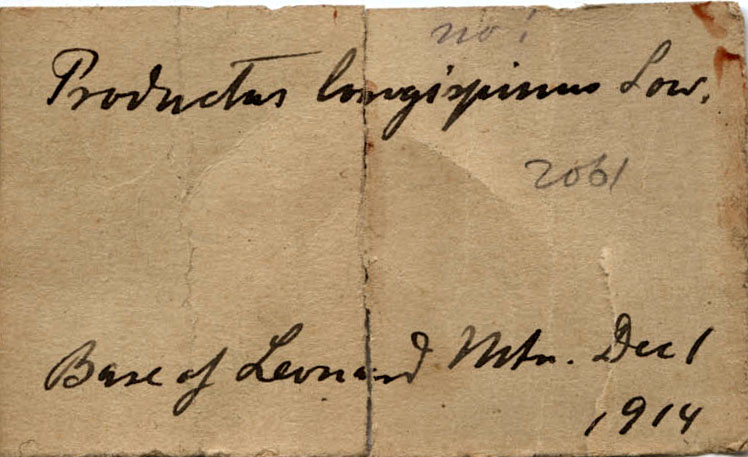 no!
Productus longispinus Sow.
2061
Base of Leonard Mtn. Dec 1
1914